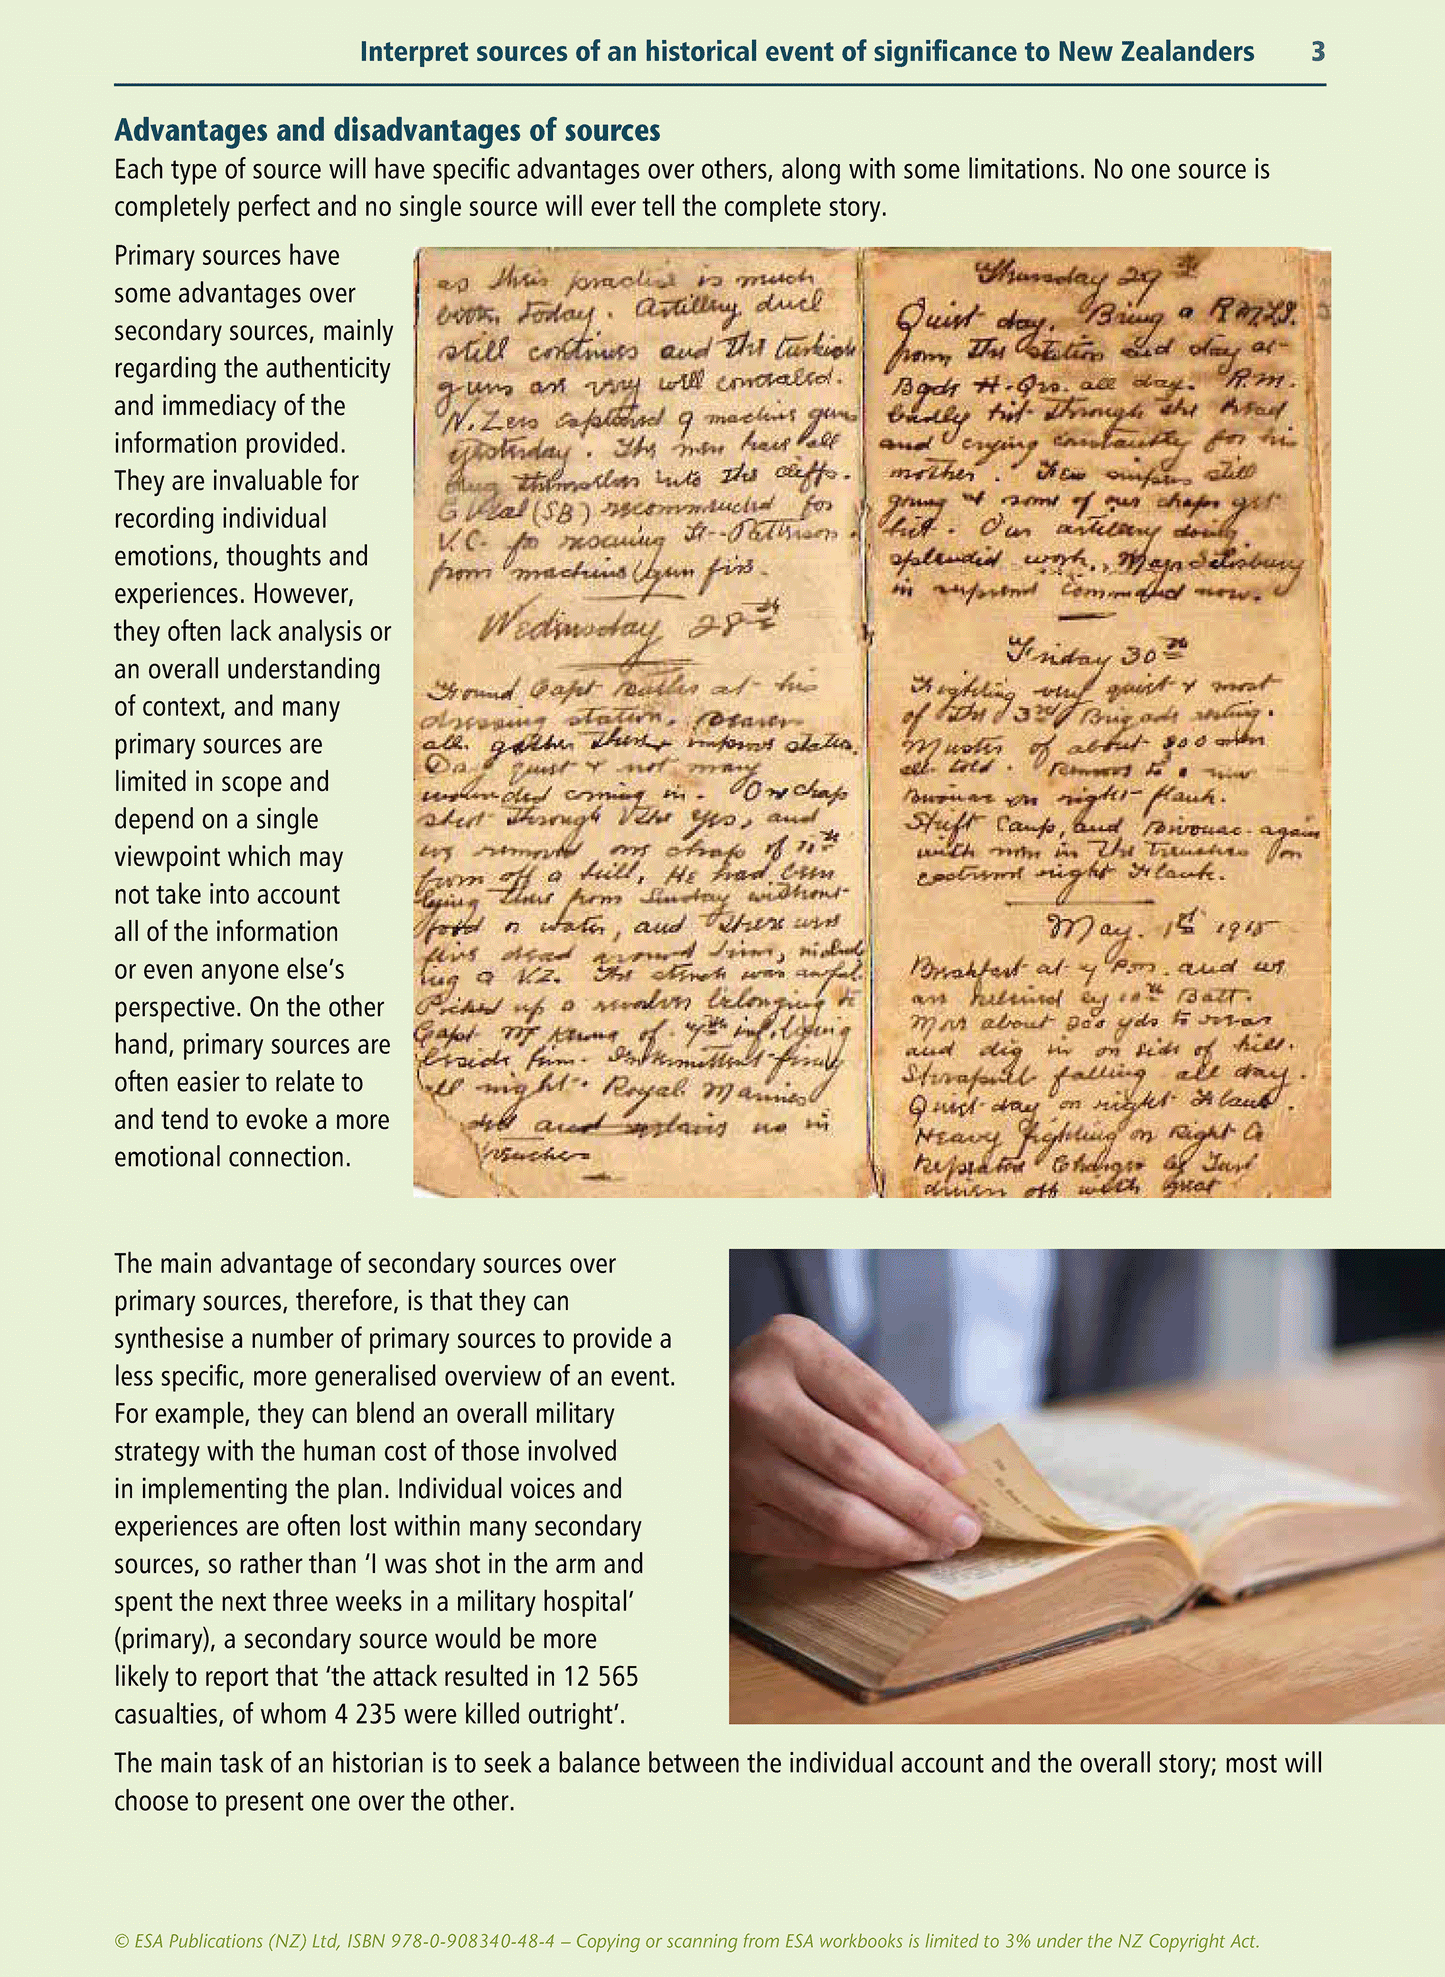 Interpret sources of an historical event of significance to New Zealanders 3
Advantages and disadvantages of sources
Each type of source will have specific advantages over others, along with some limitations. No one source is
completely perfect and no single source will ever tell the complete story.
Primary sources have
some advantages over
secondary sources, mainly
regarding the authenticity
and immediacy of the
information provided.
They are invaluable for
recording individual
emotions, thoughts and
experiences. However,
they often lack analysis or
an overall understanding
of context, and many
primary sources are
limited in scope and
depend on a single
viewpoint which may
not take into account
all of the information
or even anyone else's
perspective. On the other
hand, primary sources are
often easier to relate to
and tend to evoke a more
emotional connection.
as their practice is much
today. Artillery duel
still continues and the turkish
guns are very well concealed.
N. Zers captured 9 machine guns
yesterday. The men have all
dug themselves into the cliffs.
(SB) recommended for
V.C. for rescuing Lt. Patterson
from machine gun fire.
Wednesday 28th
Found Capt Butler at his
dressing station. Bearers
all gather there & improve station.
Day quiet & not many
wounded coming in. One chap
shot through the eye, and
we removed one chap of 11th
from off a hill. He had been
lying there from Sunday without
food or water, and there were
five dead around him, includ
ing a N.Z. The stench was awful.
Picked up a revolver belonging to
Capt of 7th inf. lying
beside him. Intermittent firing
all night. Royal Marines
and us in
trenches
Thursday 29th
Quiet day. Bring a R.M.L.I.
from the station and stay at
Bgde H.Qrs. all day. R.M.
badly hit through the head
and crying constantly for his
mother. Few snipers still
going & some of our chaps get
hit. Our artillery doing
splendid work. Major Salisbury
in supreme command now.
Friday 30th
Fighting very quiet & most
of the 3rd Brigade resting.
Muster of about 800 men
all told. Remove to a new
Bivouac on right flank.
Shift Camp, and Bivouac again
with men in the trenches on
extreme right Flank.
May. 1st 1915
Breakfast at 4 P.m. and we
are relieved by 10th Batt.
Move about 200 yds to rear
and dig in on side of hill.
Shrapnell falling all day.
Quiet day on right Flank.
Heavy fighting on Right Co
Repeated Charges by Turk
driven off with great
The main advantage of secondary sources over
primary sources, therefore, is that they can
synthesise a number of primary sources to provide a
less specific, more generalised overview of an event.
For example, they can blend an overall military
strategy with the human cost of those involved
in implementing the plan. Individual voices and
experiences are often lost within many secondary
sources, so rather than 'I was shot in the arm and
spent the next three weeks in a military hospital'
(primary), a secondary source would be more
likely to report that 'the attack resulted in 12 565
casualties, of whom 4 235 were killed outright'.
The main task of an historian is to seek a balance between the individual account and the overall story; most will
choose to present one over the other.
© ESA Publications (NZ) Ltd, ISBN 978-0-908340-48-4 – Copying or scanning from ESA workbooks is limited to 3% under the NZ Copyright Act.